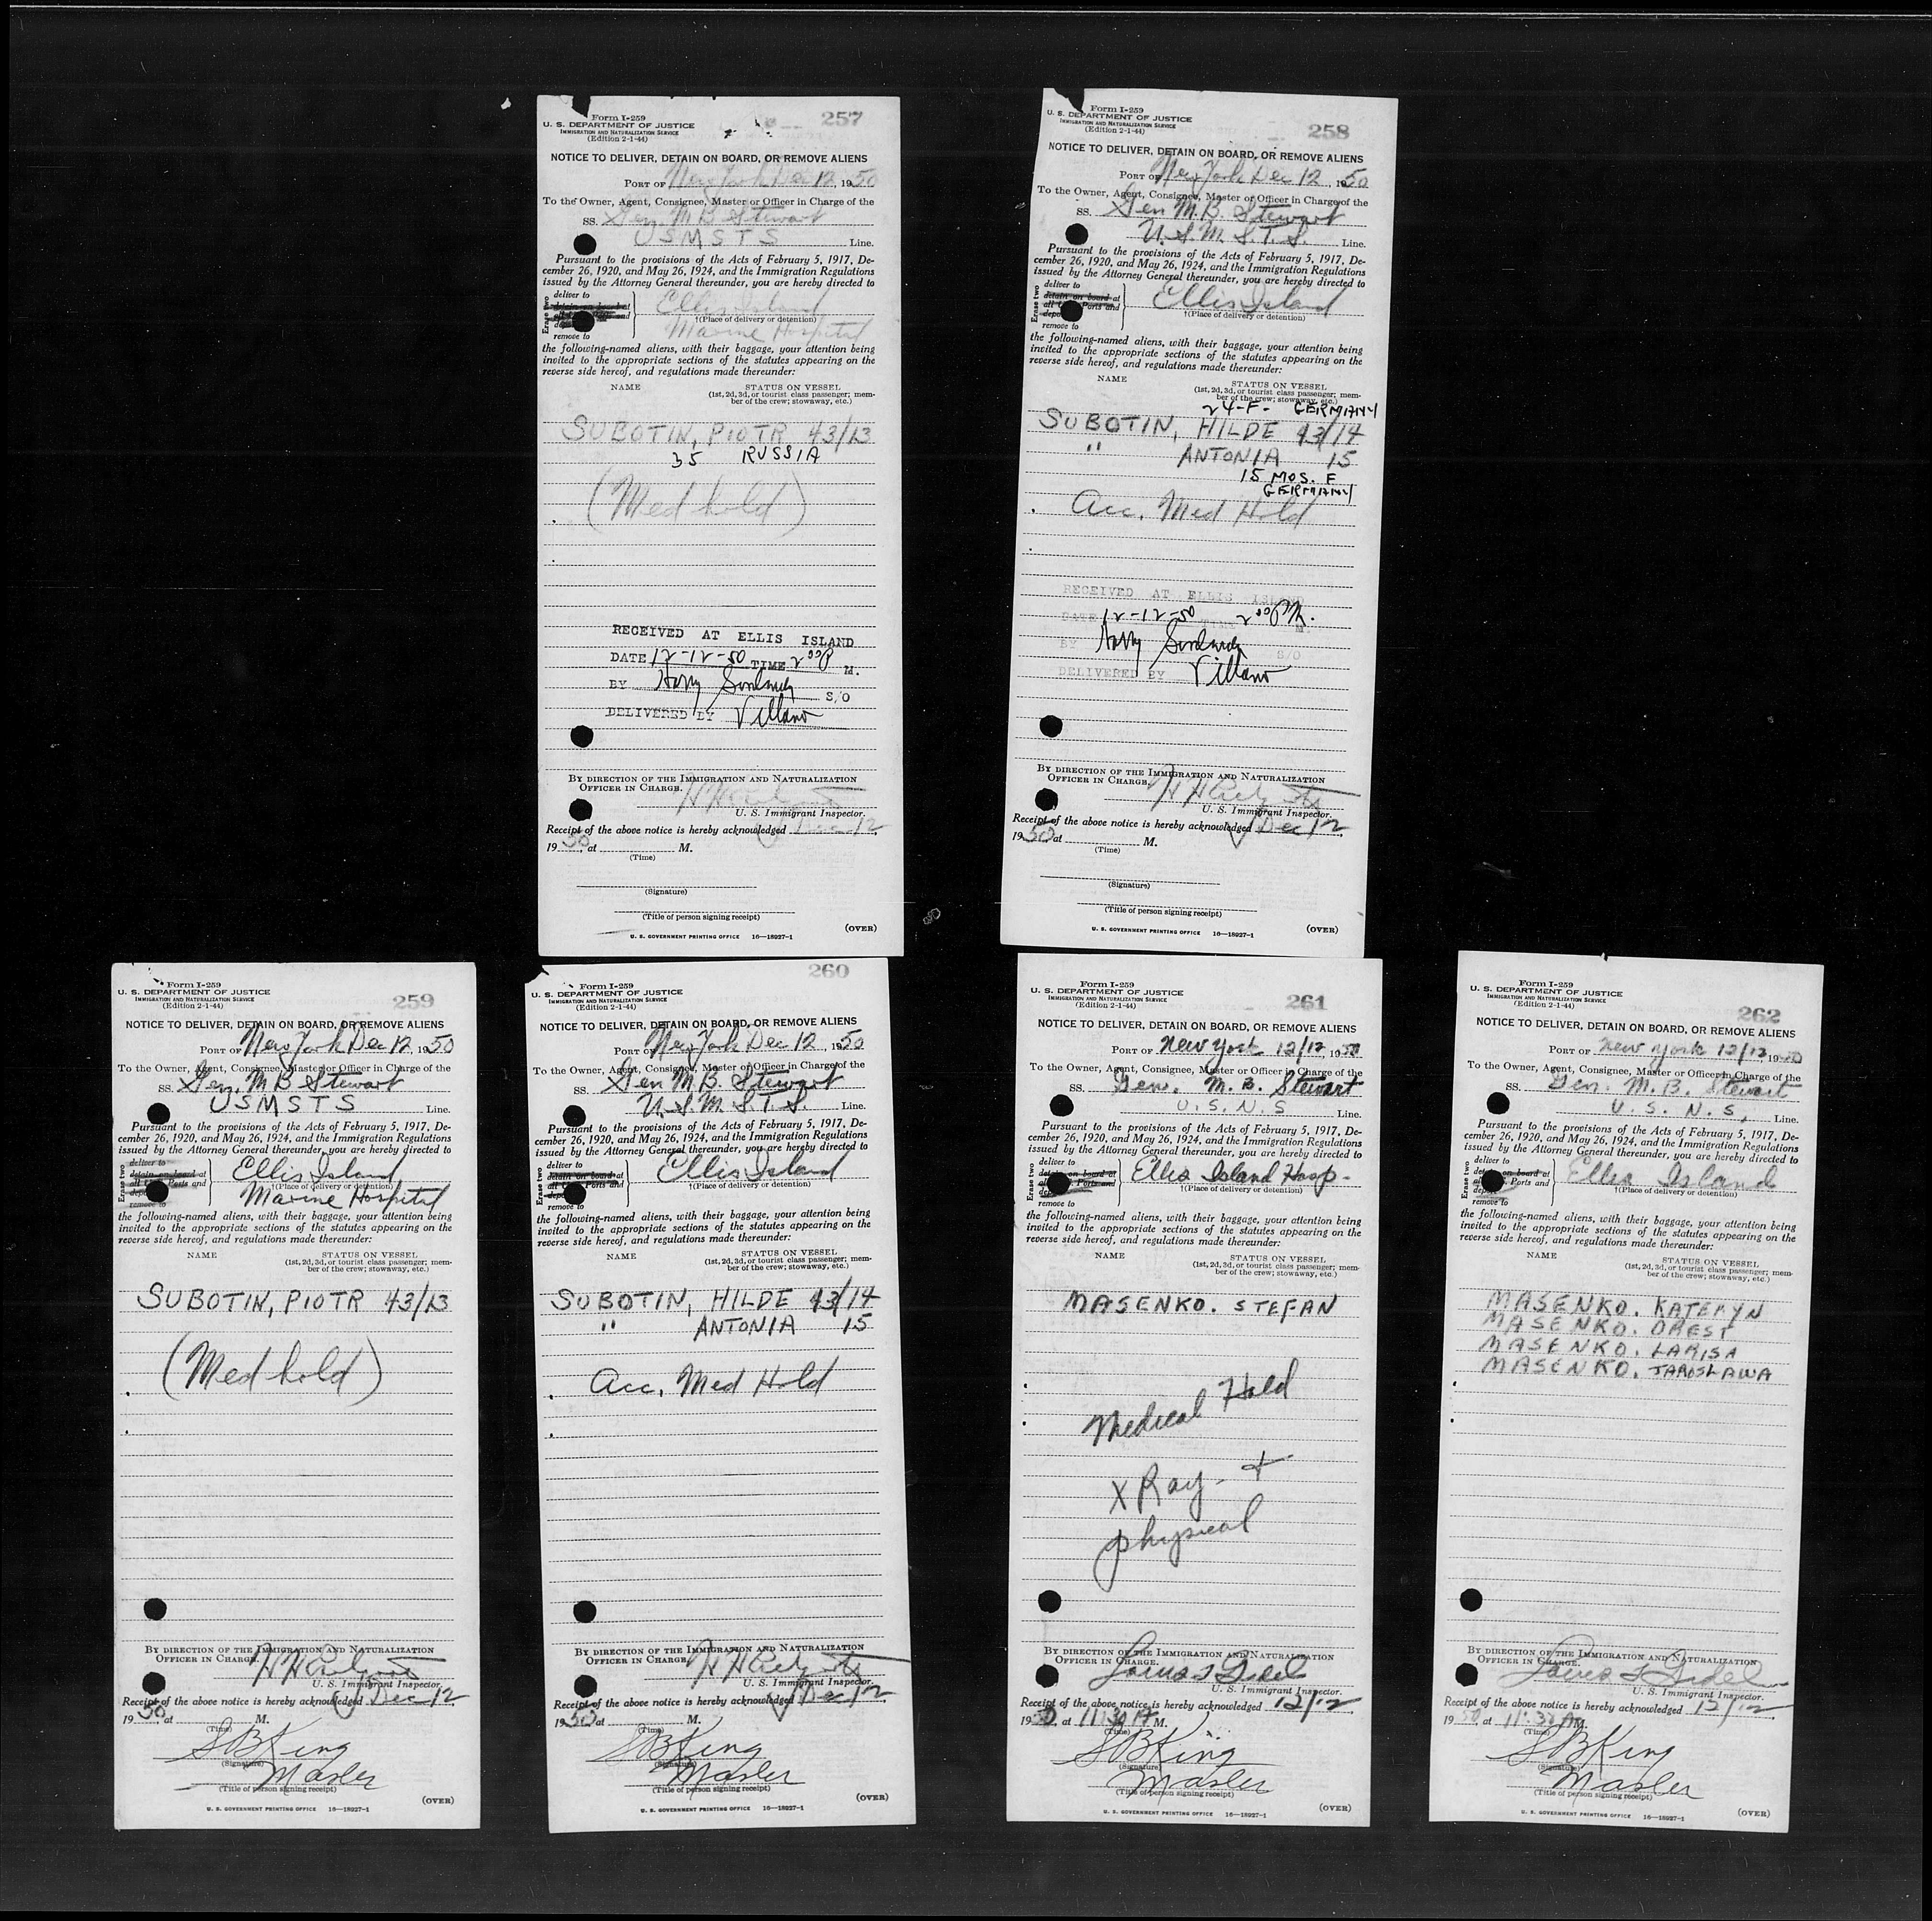 Form I-259
257
U. S. DEPARTMENT OF JUSTICE
IMMIGRATION AND NATURALIZATION SERVICE
(Edition 2-1-44)
NOTICE TO DELIVER, DETAIN ON BOARD, OR REMOVE ALIENS
PORT OF New York Dec 12, 1950
To the Owner, Agent, Consignee, Master or Officer in Charge of the
SS. Gen M B Stewart
USMSTS Line.
Pursuant to the provisions of the Acts of February 5, 1917, De-
cember 26, 1920, and May 26, 1924, and the Immigration Regulations
issued by the Attorney General thereunder, you are hereby directed to
Erase two
deliver to
detain on board at
all U.S. Ports and
deport
remove to
Ellis Island
†(Place of delivery or detention)
Marine Hospital
the following-named aliens, with their baggage, your attention being
invited to the appropriate sections of the statutes appearing on the
reverse side hereof, and regulations made thereunder:
NAME STATUS ON VESSEL
(1st, 2d, 3d, or tourist class passenger; mem-
ber of the crew; stowaway, etc.)
SUBOTIN, PIOTR 43/13
35 RUSSIA
(Med hold)
RECEIVED AT ELLIS ISLAND
DATE 12-12-50 TIME 2 00 P M.
BY Harry S/O
DELIVERED BY Villano
BY DIRECTION OF THE IMMIGRATION AND NATURALIZATION
OFFICER IN CHARGE.
U. S. Immigrant Inspector.
Receipt of the above notice is hereby acknowledged Dec 12,
1950, at M.
(Time)
(Signature)
(Title of person signing receipt)
U. S. GOVERNMENT PRINTING OFFICE 16—18927-1 (OVER)
Form I-259
258
U. S. DEPARTMENT OF JUSTICE
IMMIGRATION AND NATURALIZATION SERVICE
(Edition 2-1-44)
NOTICE TO DELIVER, DETAIN ON BOARD, OR REMOVE ALIENS
PORT OF New York Dec 12, 1950
To the Owner, Agent, Consignee, Master or Officer in Charge of the
SS. Gen M.B. Stewart
U.S.M.S.T.S. Line.
Pursuant to the provisions of the Acts of February 5, 1917, De-
cember 26, 1920, and May 26, 1924, and the Immigration Regulations
issued by the Attorney General thereunder, you are hereby directed to
Erase two
deliver to
detain on board at
all U.S. Ports and
deport
remove to
Ellis Island
†(Place of delivery or detention)
the following-named aliens, with their baggage, your attention being
invited to the appropriate sections of the statutes appearing on the
reverse side hereof, and regulations made thereunder:
NAME STATUS ON VESSEL
(1st, 2d, 3d, or tourist class passenger; mem-
ber of the crew; stowaway, etc.)
24-F- GERMANY
SUBOTIN, HILDE 43/14
" ANTONIA 15
15 MOS. F
GERMANY
Acc. Med Hold
RECEIVED AT ELLIS ISLAND
DATE 12-12-50 2 00 PM.
BY Harry S/O
DELIVERED BY Villano
BY DIRECTION OF THE IMMIGRATION AND NATURALIZATION
OFFICER IN CHARGE.
U. S. Immigrant Inspector.
Receipt of the above notice is hereby acknowledged Dec 12,
1950 at M.
(Time)
(Signature)
(Title of person signing receipt)
U. S. GOVERNMENT PRINTING OFFICE 16—18927-1 (OVER)
Form I-259
259
U. S. DEPARTMENT OF JUSTICE
IMMIGRATION AND NATURALIZATION SERVICE
(Edition 2-1-44)
NOTICE TO DELIVER, DETAIN ON BOARD, OR REMOVE ALIENS
PORT OF New York Dec 12, 1950
To the Owner, Agent, Consignee, Master or Officer in Charge of the
SS. Gen. M B Stewart
USMSTS Line.
Pursuant to the provisions of the Acts of February 5, 1917, De-
cember 26, 1920, and May 26, 1924, and the Immigration Regulations
issued by the Attorney General thereunder, you are hereby directed to
Erase two
deliver to
detain on board at
all U.S. Ports and
deport
remove to
Ellis Island
†(Place of delivery or detention)
Marine Hospital
the following-named aliens, with their baggage, your attention being
invited to the appropriate sections of the statutes appearing on the
reverse side hereof, and regulations made thereunder:
NAME STATUS ON VESSEL
(1st, 2d, 3d, or tourist class passenger; mem-
ber of the crew; stowaway, etc.)
SUBOTIN, PIOTR 43/13
(Med hold)
BY DIRECTION OF THE IMMIGRATION AND NATURALIZATION
OFFICER IN CHARGE.
U. S. Immigrant Inspector.
Receipt of the above notice is hereby acknowledged Dec 12,
1950, at M.
(Time)
S B King
(Signature)
Master
(Title of person signing receipt)
U. S. GOVERNMENT PRINTING OFFICE 16—18927-1 (OVER)
Form I-259
260
U. S. DEPARTMENT OF JUSTICE
IMMIGRATION AND NATURALIZATION SERVICE
(Edition 2-1-44)
NOTICE TO DELIVER, DETAIN ON BOARD, OR REMOVE ALIENS
PORT OF New York Dec 12, 1950
To the Owner, Agent, Consignee, Master or Officer in Charge of the
SS. Gen M.B. Stewart
U.S.M.S.T.S. Line.
Pursuant to the provisions of the Acts of February 5, 1917, De-
cember 26, 1920, and May 26, 1924, and the Immigration Regulations
issued by the Attorney General thereunder, you are hereby directed to
Erase two
deliver to
detain on board at
all U.S. Ports and
deport
remove to
Ellis Island
†(Place of delivery or detention)
the following-named aliens, with their baggage, your attention being
invited to the appropriate sections of the statutes appearing on the
reverse side hereof, and regulations made thereunder:
NAME STATUS ON VESSEL
(1st, 2d, 3d, or tourist class passenger; mem-
ber of the crew; stowaway, etc.)
SUBOTIN, HILDE 43/14
" ANTONIA 15
Acc. Med Hold
BY DIRECTION OF THE IMMIGRATION AND NATURALIZATION
OFFICER IN CHARGE.
U. S. Immigrant Inspector.
Receipt of the above notice is hereby acknowledged Dec 12,
1950 at M.
(Time)
S B King
(Signature)
Master
(Title of person signing receipt)
U. S. GOVERNMENT PRINTING OFFICE 16—18927-1 (OVER)
Form I-259
261
U. S. DEPARTMENT OF JUSTICE
IMMIGRATION AND NATURALIZATION SERVICE
(Edition 2-1-44)
NOTICE TO DELIVER, DETAIN ON BOARD, OR REMOVE ALIENS
PORT OF New York 12/12, 1950
To the Owner, Agent, Consignee, Master or Officer in Charge of the
SS. Gen. M. B. Stewart
U. S. N. S Line.
Pursuant to the provisions of the Acts of February 5, 1917, De-
cember 26, 1920, and May 26, 1924, and the Immigration Regulations
issued by the Attorney General thereunder, you are hereby directed to
Erase two
deliver to
detain on board at
all U.S. Ports and
deport
remove to
Ellis Island Hosp-
†(Place of delivery or detention)
the following-named aliens, with their baggage, your attention being
invited to the appropriate sections of the statutes appearing on the
reverse side hereof, and regulations made thereunder:
NAME STATUS ON VESSEL
(1st, 2d, 3d, or tourist class passenger; mem-
ber of the crew; stowaway, etc.)
MASENKO. STEFAN
Medical Hold
X Ray - +
physical
BY DIRECTION OF THE IMMIGRATION AND NATURALIZATION
OFFICER IN CHARGE.
U. S. Immigrant Inspector.
Receipt of the above notice is hereby acknowledged 12/12,
1950, at 11:30 A M.
(Time)
S B King
(Signature)
Master
(Title of person signing receipt)
U. S. GOVERNMENT PRINTING OFFICE 16—18927-1 (OVER)
Form I-259
262
U. S. DEPARTMENT OF JUSTICE
IMMIGRATION AND NATURALIZATION SERVICE
(Edition 2-1-44)
NOTICE TO DELIVER, DETAIN ON BOARD, OR REMOVE ALIENS
PORT OF New York 12/12, 1950
To the Owner, Agent, Consignee, Master or Officer in Charge of the
SS. Gen. M. B. Stewart
U. S. N. S, Line.
Pursuant to the provisions of the Acts of February 5, 1917, De-
cember 26, 1920, and May 26, 1924, and the Immigration Regulations
issued by the Attorney General thereunder, you are hereby directed to
Erase two
deliver to
detain on board at
all U.S. Ports and
deport
remove to
Ellis Island
†(Place of delivery or detention)
the following-named aliens, with their baggage, your attention being
invited to the appropriate sections of the statutes appearing on the
reverse side hereof, and regulations made thereunder:
NAME STATUS ON VESSEL
(1st, 2d, 3d, or tourist class passenger; mem-
ber of the crew; stowaway, etc.)
MASENKO. KATERYN
MASENKO. OREST
MASENKO. LARISA
MASENKO. JAROSLAWA
BY DIRECTION OF THE IMMIGRATION AND NATURALIZATION
OFFICER IN CHARGE.
U. S. Immigrant Inspector.
Receipt of the above notice is hereby acknowledged 12/12,
1950, at 11:30 AM.
(Time)
S B King
(Signature)
Master
(Title of person signing receipt)
U. S. GOVERNMENT PRINTING OFFICE 16—18927-1 (OVER)